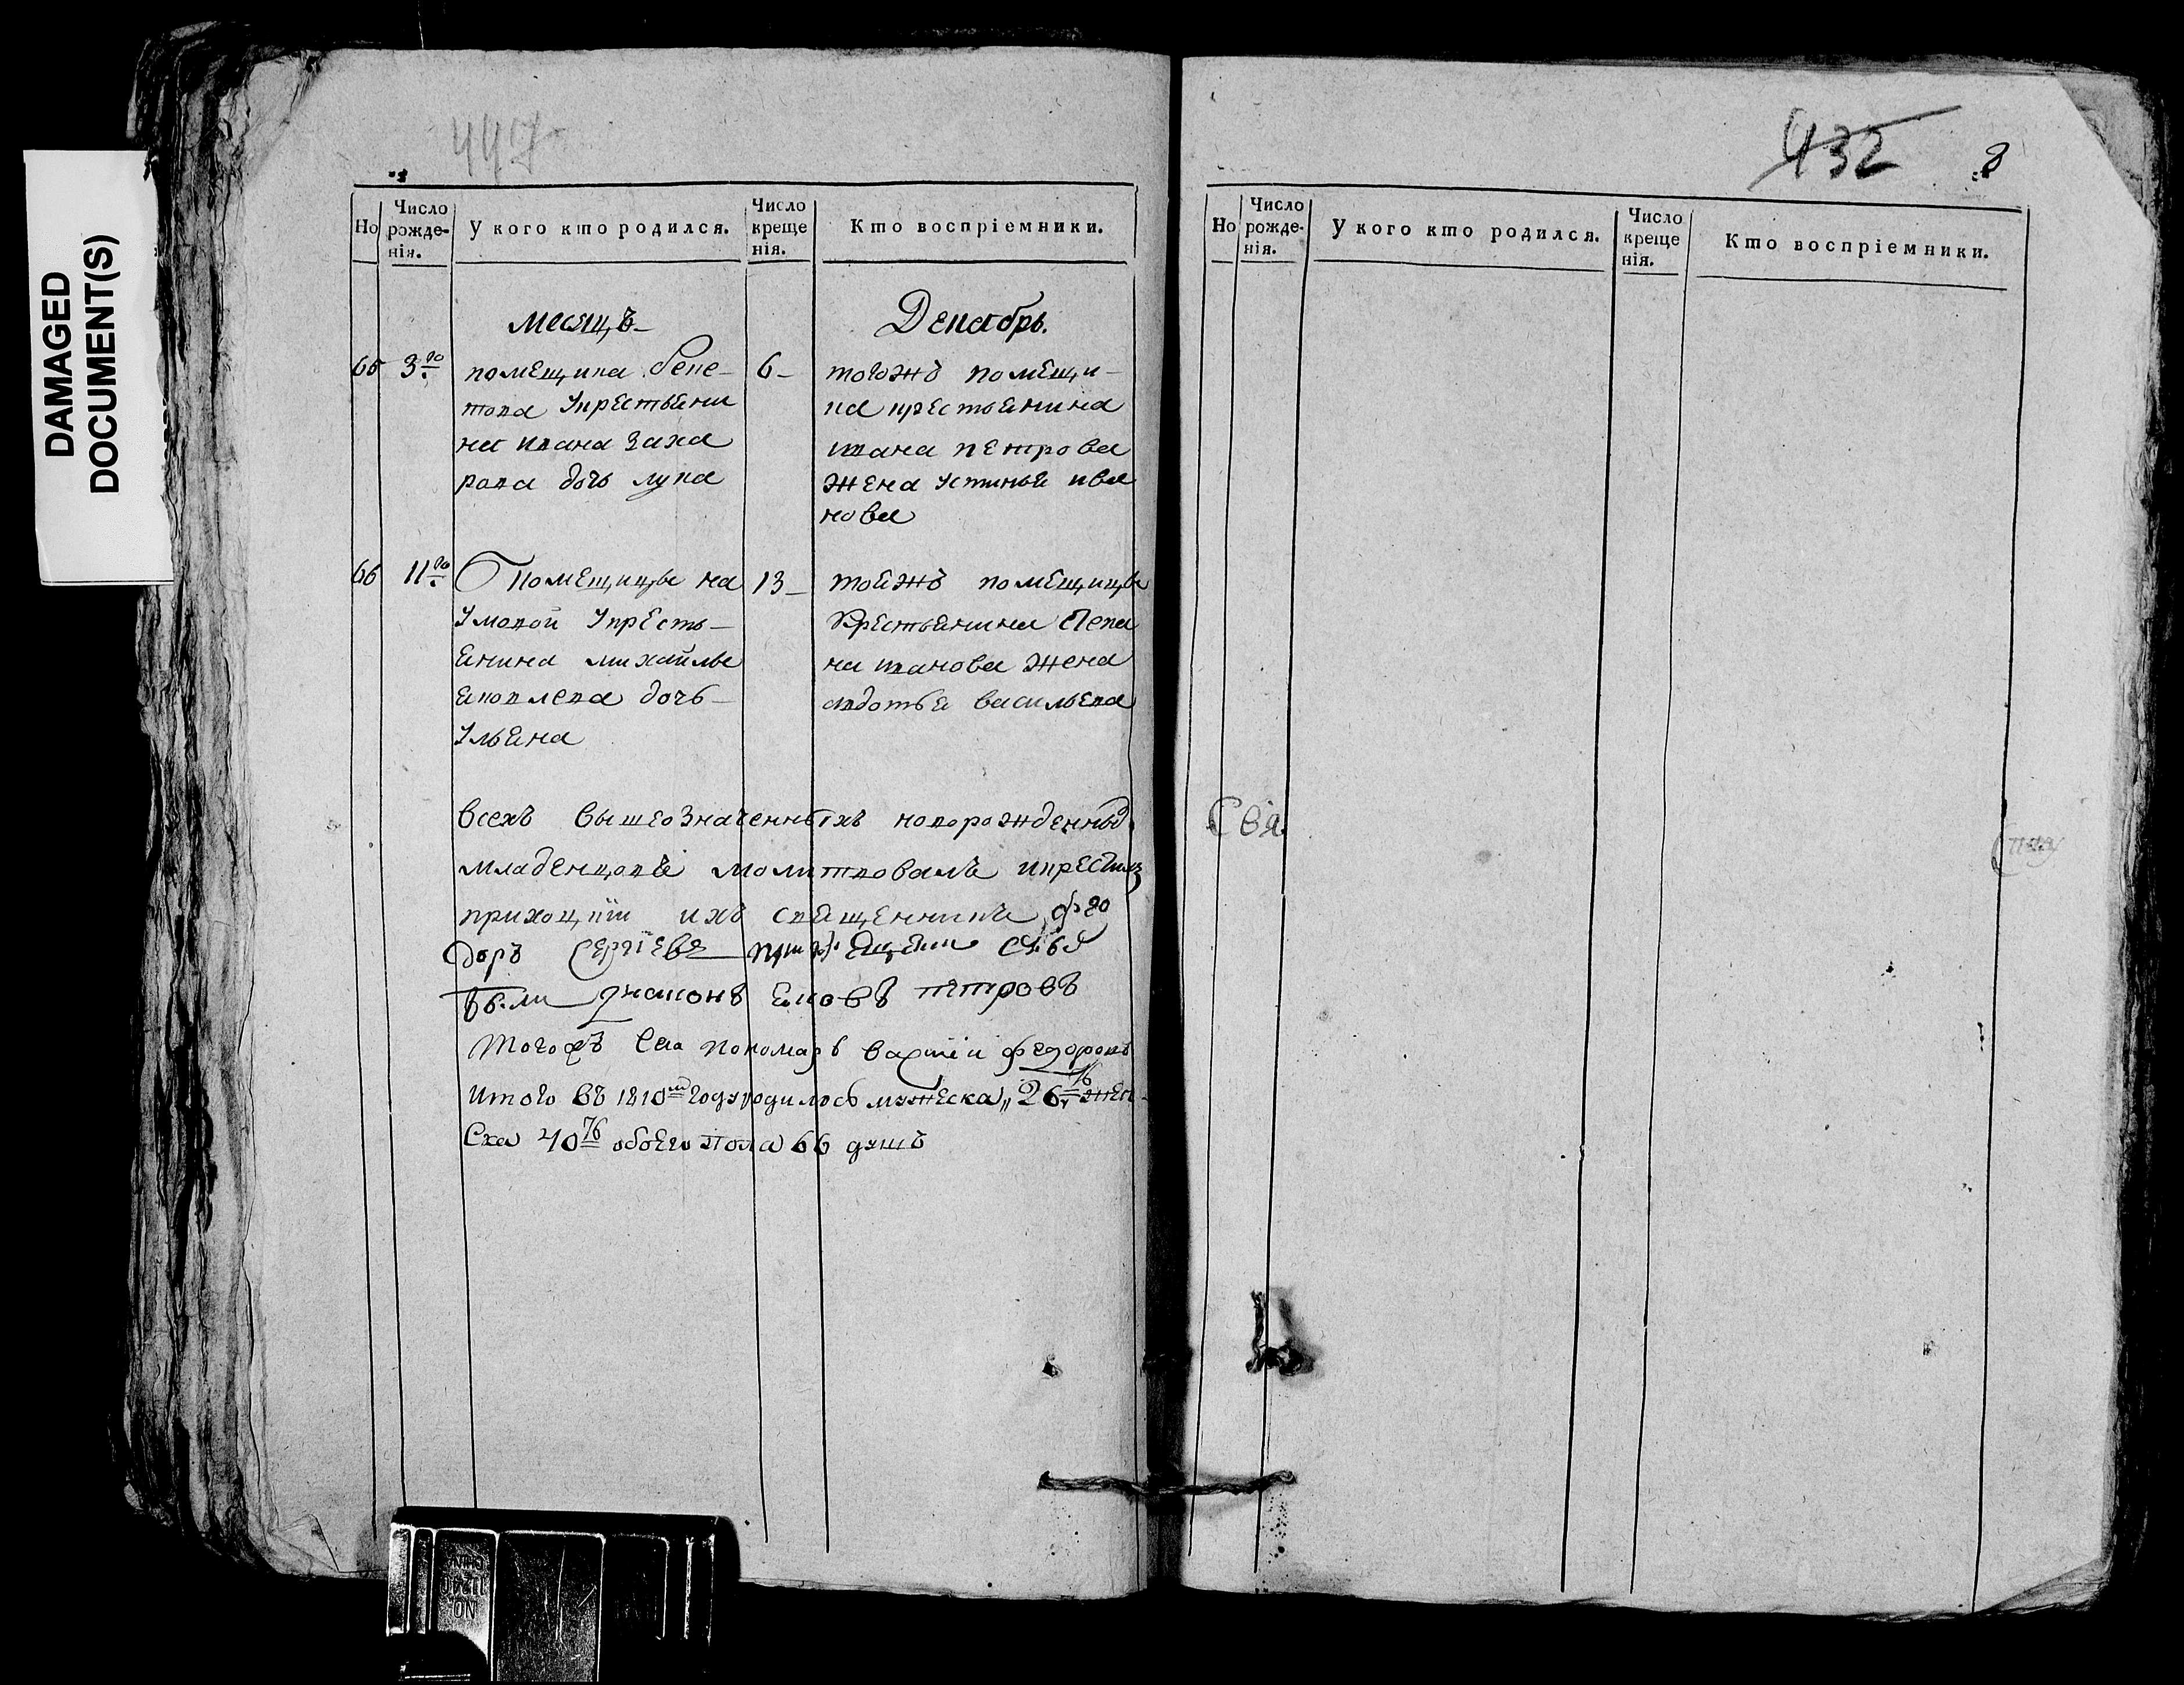 DAMAGED
DOCUMENT(S)
447
Но
Число рожденія.
У кого кто родился.
Число крещенія.
Кто воспріемники.
месяцъ
Декабрь.
65 3го помещика беке-
това Укрестьяни
на ивана заха
рова дочь лука
6
тогожъ помещи-
ка крестьянина
ивана петрова
жена устинья ива
нова
66 11го Помещицы на
Умовой Укресть-
янина михайлы
яковлева дочь
Ульяна
13
тояжъ помещицы
Крестьянина Степа
на иванова жена
авдотья васильева
всехъ вышеозначенныхъ новорожденныхъ
младенцовъ молитвовалъ икрестилъ
приходскій ихъ священникъ фео
доръ Сергіевъ при крещеніи
были дьяконъ яковъ петровъ
Тогожъ села пономарь василіи федоровъ
итого въ 1810м годуродилось мужеска 26ть женс
ска 40ть обоего пола 66 душъ
432
8
Но
Число рожденія.
У кого кто родился.
Число крещенія.
Кто воспріемники.
Свя